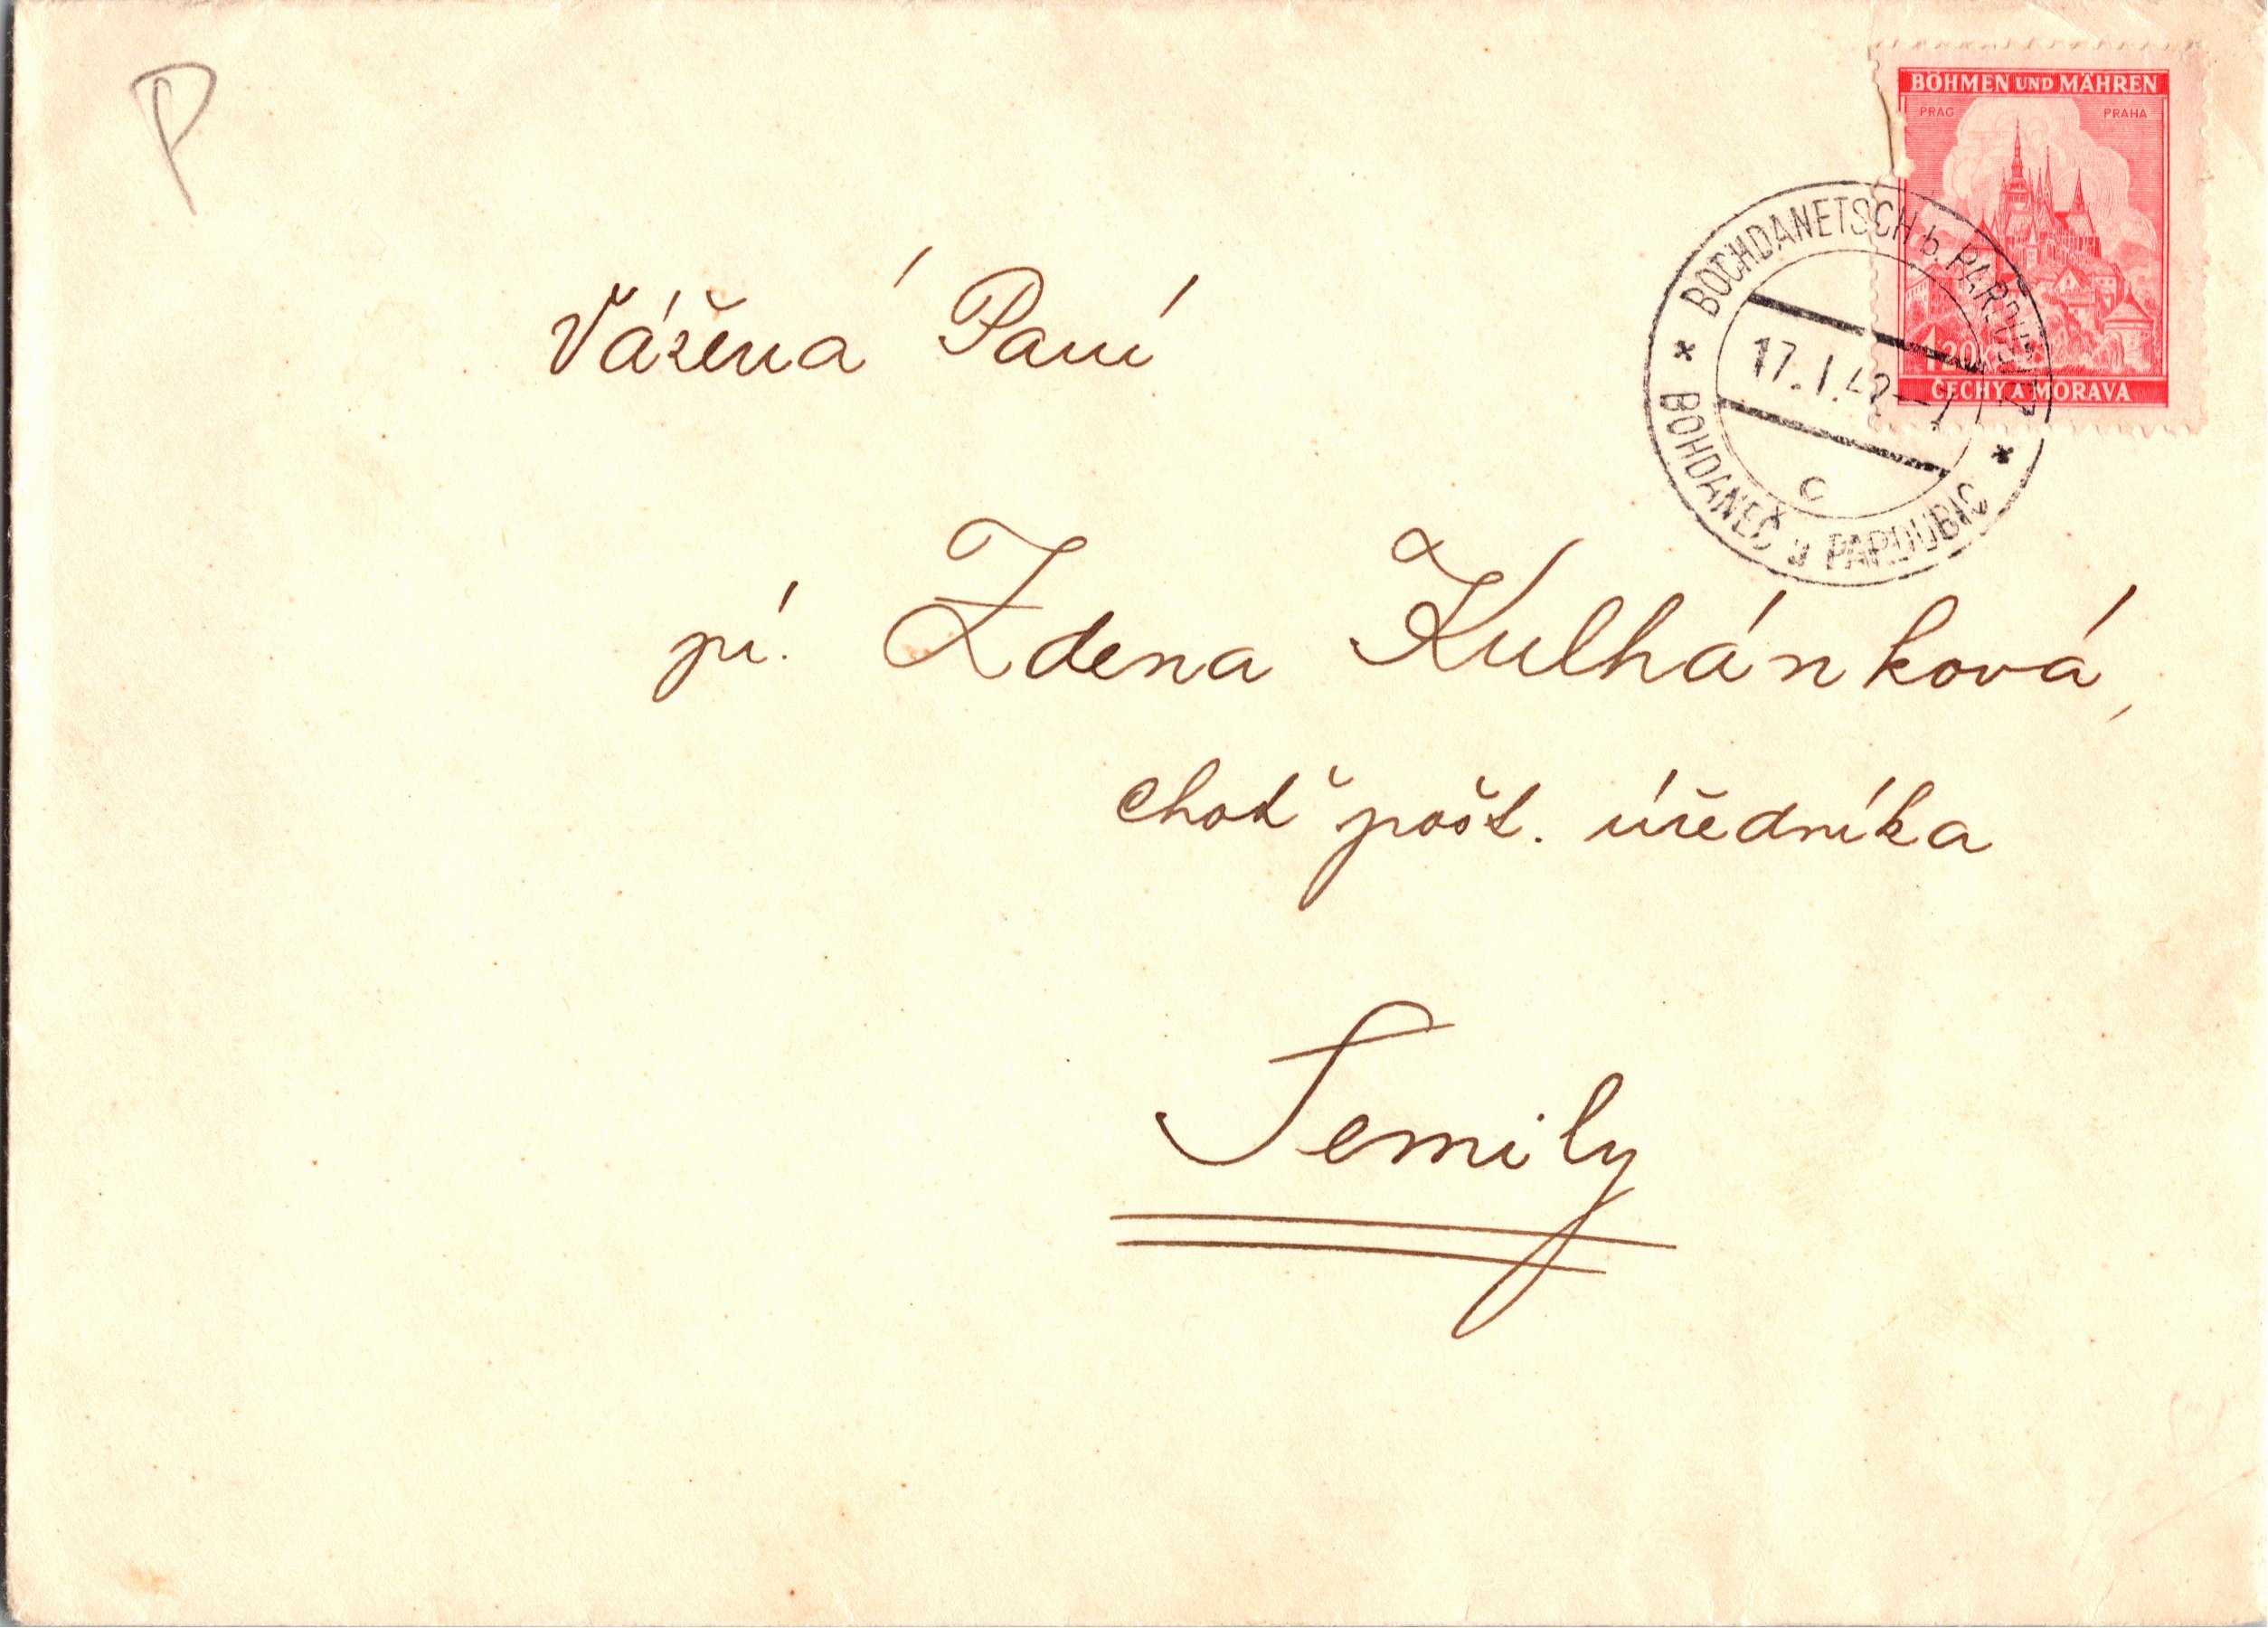 P
BÖHMEN UND MÄHREN
PRAG PRAHA
1.20
ČECHY A MORAVA
* BOCHDANETSCH b. PARDUBITZ *
17. I. 42
c
BOHDANEČ u PARDUBIC
Vážená Paní
pí. Zdena Kulhánková,
choť pošt. úředníka
Semily